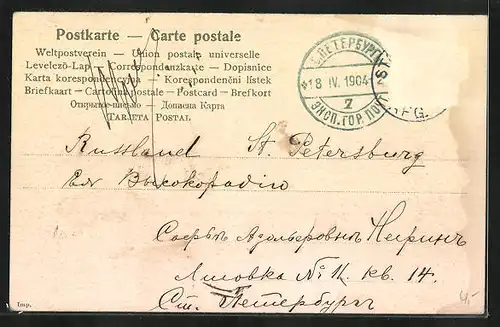 Postkarte — Carte postale
Weltpostverein — Union postale universelle
Levelező-Lap — Correspondenzkarte — Dopisnice
Karta korespondencyjna — Korespondenční lístek
Briefkaart — Cartolina postale — Postcard — Brefkort
Открытое письмо — Дописна Карта
TARJETA POSTAL
С.ПЕТЕРБУРГЪ
18 IV. 1904
7
ЭКСП. ГОР. ПОЧ
Russland St. Petersburg
Ея Высокородію
Адольфовнѣ
№ 11. кв. 14.
Ст. Петербургъ
Imp.